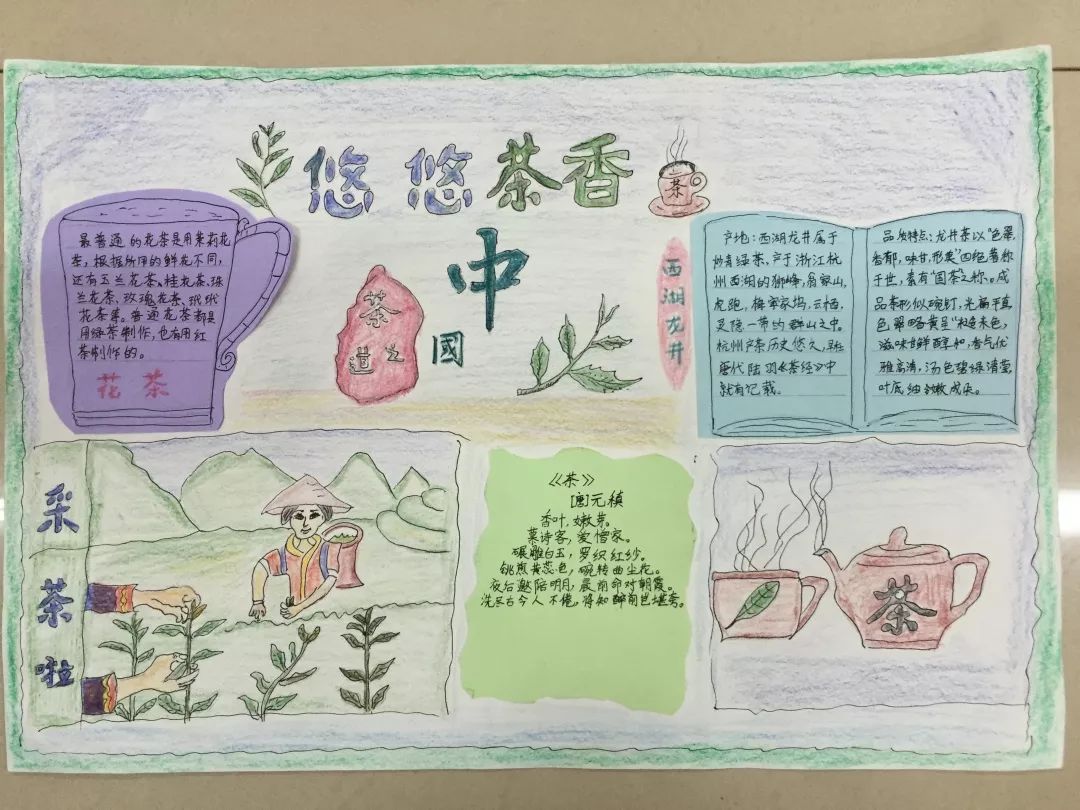 悠悠茶香
茶
中
國
茶
之
道
最普通的花茶是用茉莉花
茶，根据所用的鲜花不同，
还有玉兰花茶、桂花茶、珠
兰花茶、玫瑰花茶、玳玳
花茶等。普通花茶都是
用绿茶制作，也有用红
茶制作的。
花茶
西湖龙井
产地：西湖龙井属于
炒青绿茶，产于浙江杭
州西湖的狮峰、翁家山、
虎跑、梅家坞、云栖、
灵隐一带的群山之中。
杭州产茶历史悠久，早在
唐代陆羽《茶经》中
就有记载。
品质特点：龙井茶以“色翠，
香郁，味甘，形美”四绝著称
于世，素有“国茶”之称。成
品茶形似碗钉，光扁平直，
色翠略黄呈“糙米色，
滋味甘鲜醇和，香气优
雅高清，汤色碧绿清莹，
叶底细嫩成朵。
采茶啦
《茶》
[唐]元稹
香叶，嫩芽。
慕诗客，爱僧家。
碾雕白玉，罗织红纱。
铫煎黄蕊色，碗转曲尘花。
夜后邀陪明月，晨前命对朝霞。
洗尽古今人不倦，将知醉前岂堪夸。
茶